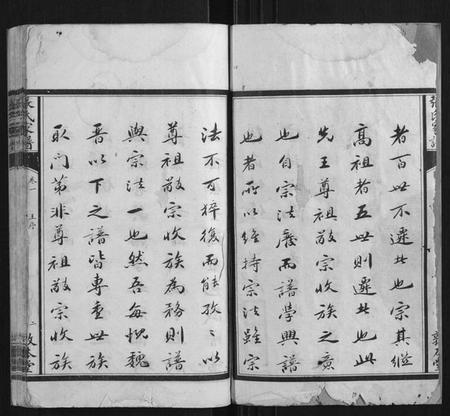 者百世不遷也宗其繼
高祖者五世則遷也此
先王尊祖敬宗收族之意
也自宗法廢而譜學興譜
也者所以維持宗法雖宗
法不可猝復而能孜孜以
尊祖敬宗收族為務則譜
與宗法一也然吾每慨魏
晉以下之譜皆專重世族
取門第非尊祖敬宗收族